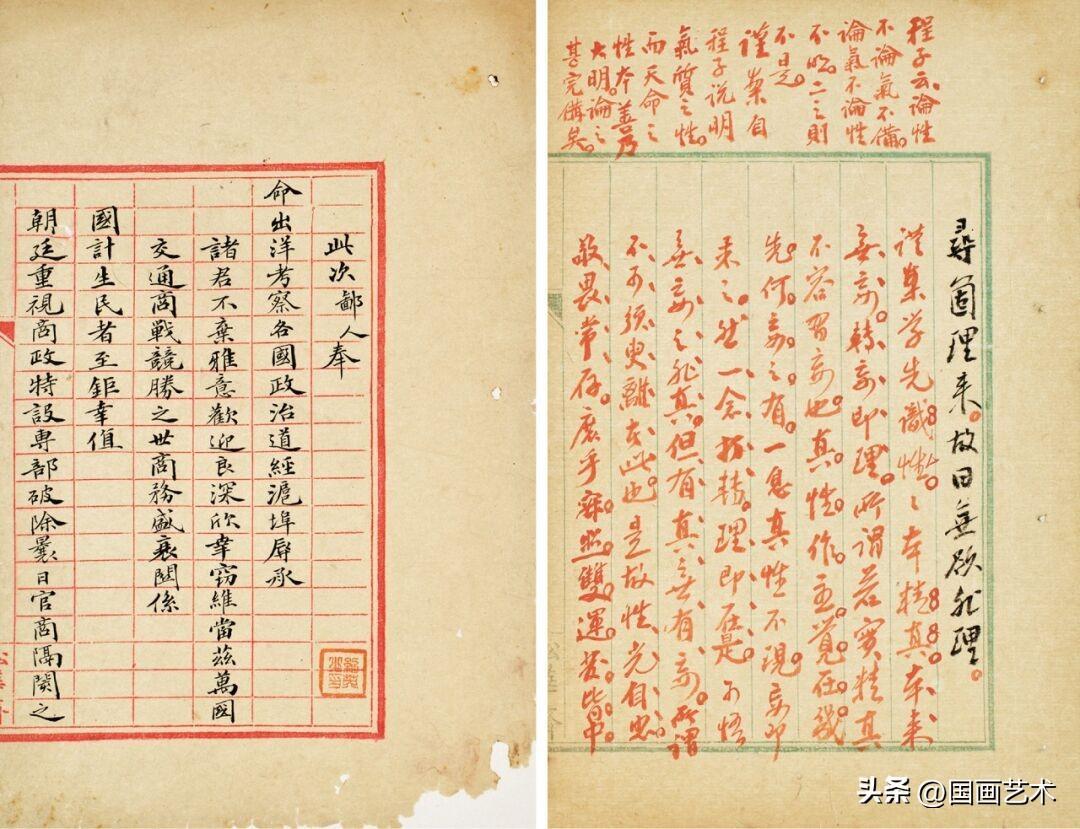 此次鄙人奉
命出洋考察各國政治道經滬埠辱承
諸君不棄雅意歡迎良深欣幸竊維當茲萬國
交通商戰競勝之世商務盛衰關係
國計生民者至鉅幸值
朝廷重視商政特設專部破除曩日官商隔閡之
程子云論性
不論氣不備
論氣不論性
不明二之則
不是
謹案自
程子說明
氣質之性
而天命之
性本善乃
大明論之
甚完備矣
尋箇理來。故曰無欲非理。
謹案学先識性。性本精真。本来
無妄。轉妄即理。所謂若實精真
不容習妄也。真性作主。覺在幾
先。何妄之有。一息真性不現妄即
来之。然一念扭轉。理即在是。不悟
無妄之非真。但有真無有妄。所謂
不可須臾離者此也。是故性光自
敬畏常存。庶乎寂照雙運。發皆中
头条 @国画艺术